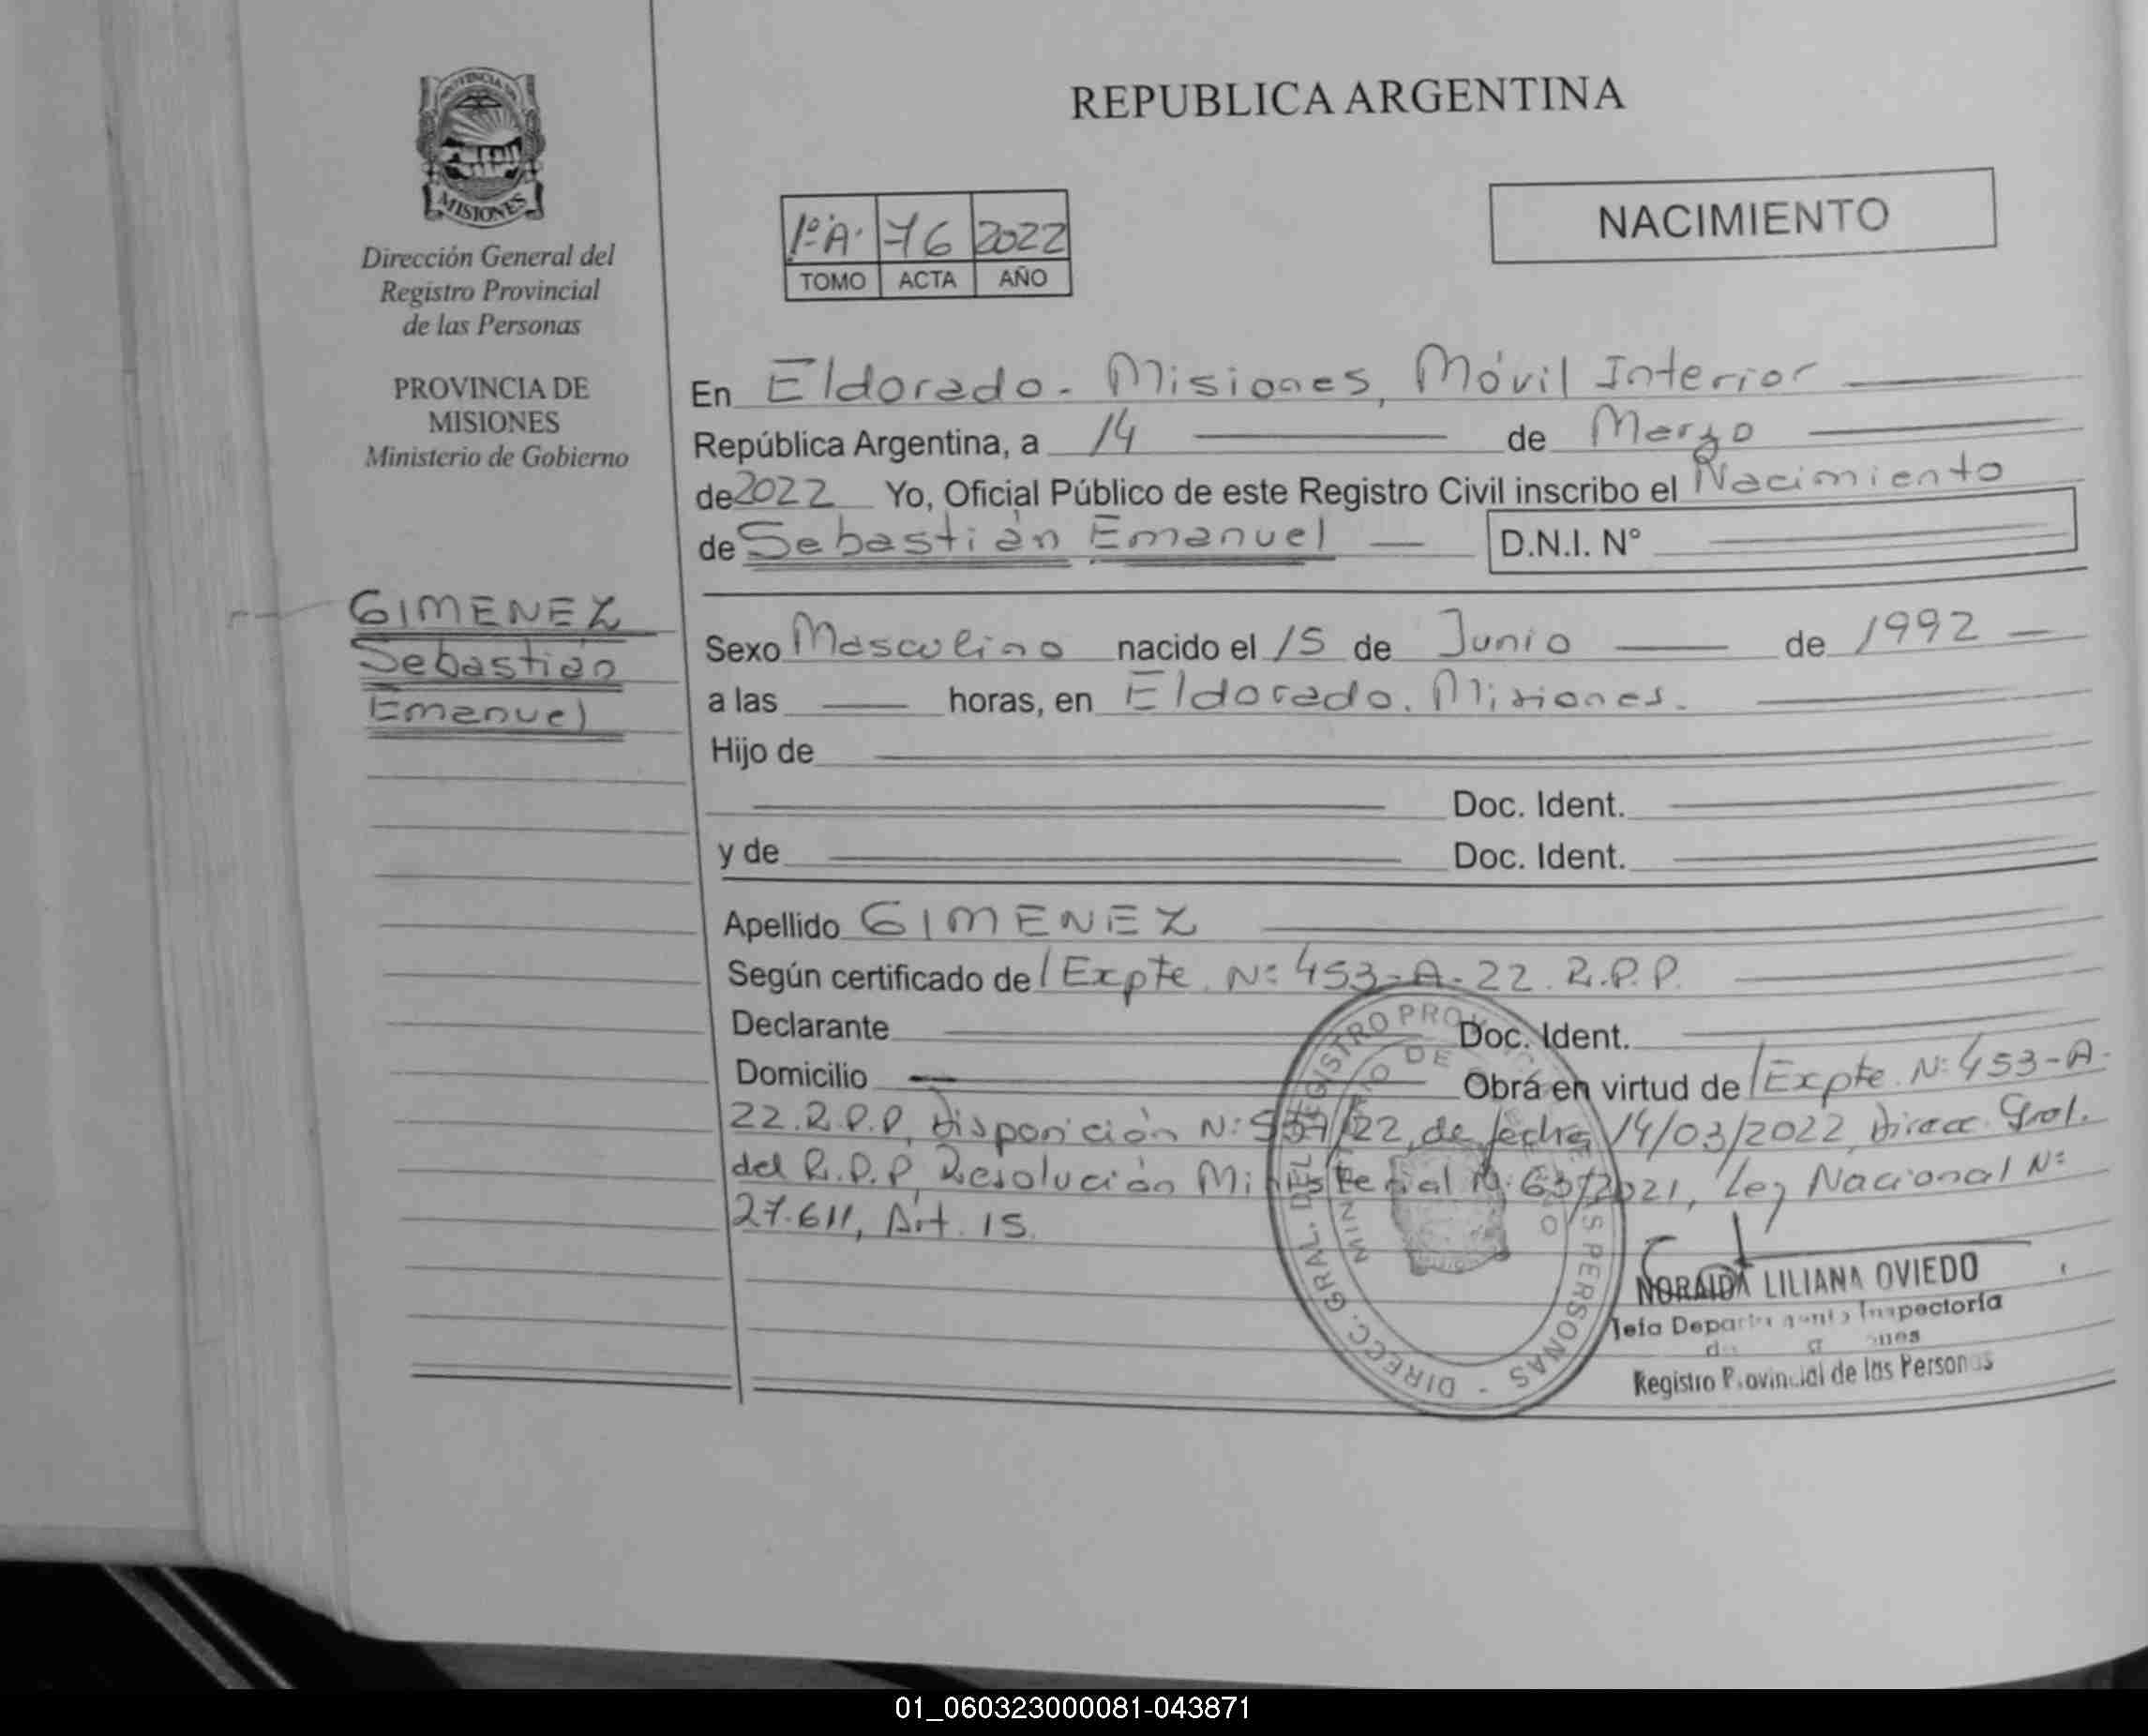 REPUBLICA ARGENTINA
PROVINCIA DE
MISIONES
Dirección General del
Registro Provincial
de las Personas
PROVINCIA DE
MISIONES
Ministerio de Gobierno
1º"A" 76 2022
TOMO ACTA AÑO
NACIMIENTO
En Eldorado - Misiones, Móvil Interior
República Argentina, a 14 de Marzo
de 2022 Yo, Oficial Público de este Registro Civil inscribo el Nacimiento
de Sebastián Emanuel D.N.I. N°
GIMENEZ
Sebastián
Emanuel
Sexo Masculino nacido el 15 de Junio de 1992
a las horas, en Eldorado. Misiones.
Hijo de
Doc. Ident.
y de Doc. Ident.
Apellido GIMENEZ
Según certificado de / Expte. N: 453-A-22. R.P.P.
Declarante Doc. Ident.
Domicilio Obra en virtud de / Expte. N: 453-A-
22. R.P.P, Disposición N: /22, de fecha 14/03/2022, Direcc. Gral.
del R.P.P, Resolución Ministerial N: 63/2021, Ley Nacional N:
27.611, Art. 15.
DIRECC. GRAL. DEL REGISTRO PROV. DE LAS PERSONAS -
NORAIDA LILIANA OVIEDO
Jefa Departamento Inspectoría
Registro Provincial de las Personas
01_060323000081-043871